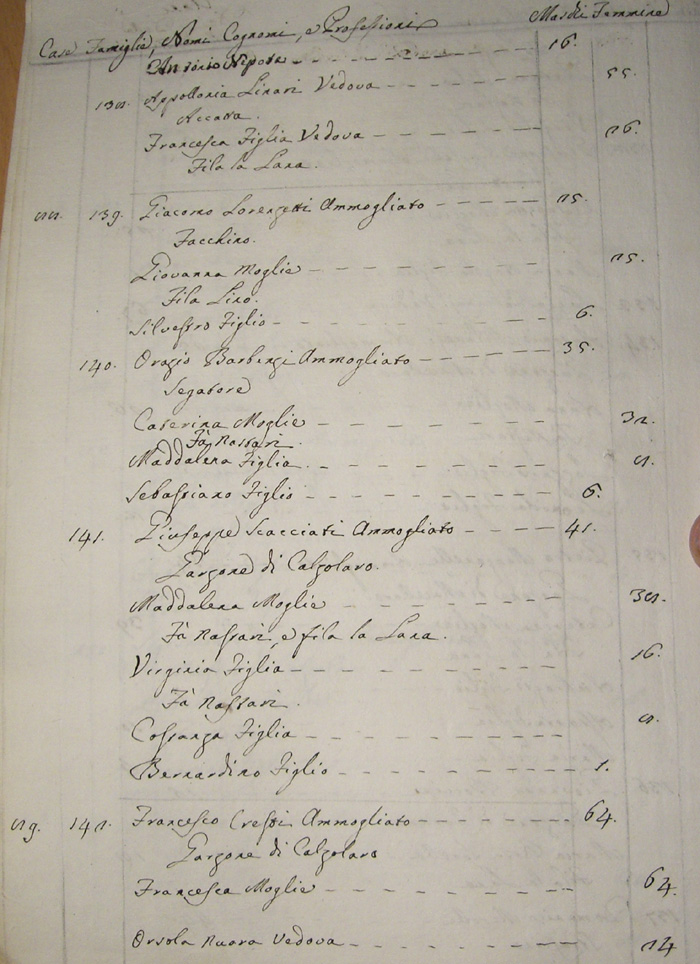 Case Famiglie, Nomi Cognomi, e Professioni Maschi Femmine
Antonio Nipote 16.
Appollonia Linari Vedova 55.
Accatta.
Francesca Figlia Vedova 26.
Fila la Lana.
139. Giacomo Lorenzetti Ammogliato 25.
Facchino.
Giovanna Moglie 25.
Fila Lino.
Silvestro Figlio 6.
140. Orazio Barbenzi Ammogliato 35.
Segatore
Caterina Moglie 32.
Fà Nastari.
Maddalena Figlia
Sebastiano Figlio 6.
141. Giuseppe Scacciati Ammogliato 41.
Garzone di Calzolaro.
Maddalena Moglie
Fà Nastari, e fila la Lana.
Virginia Figlia 16.
Fà Nastari.
Costanza Figlia
Bernardino Figlio 1.
142. Francesco Cresti Ammogliato 64.
Garzone di Calzolaro
Francesca Moglie 64.
Orsola Nuora Vedova 24